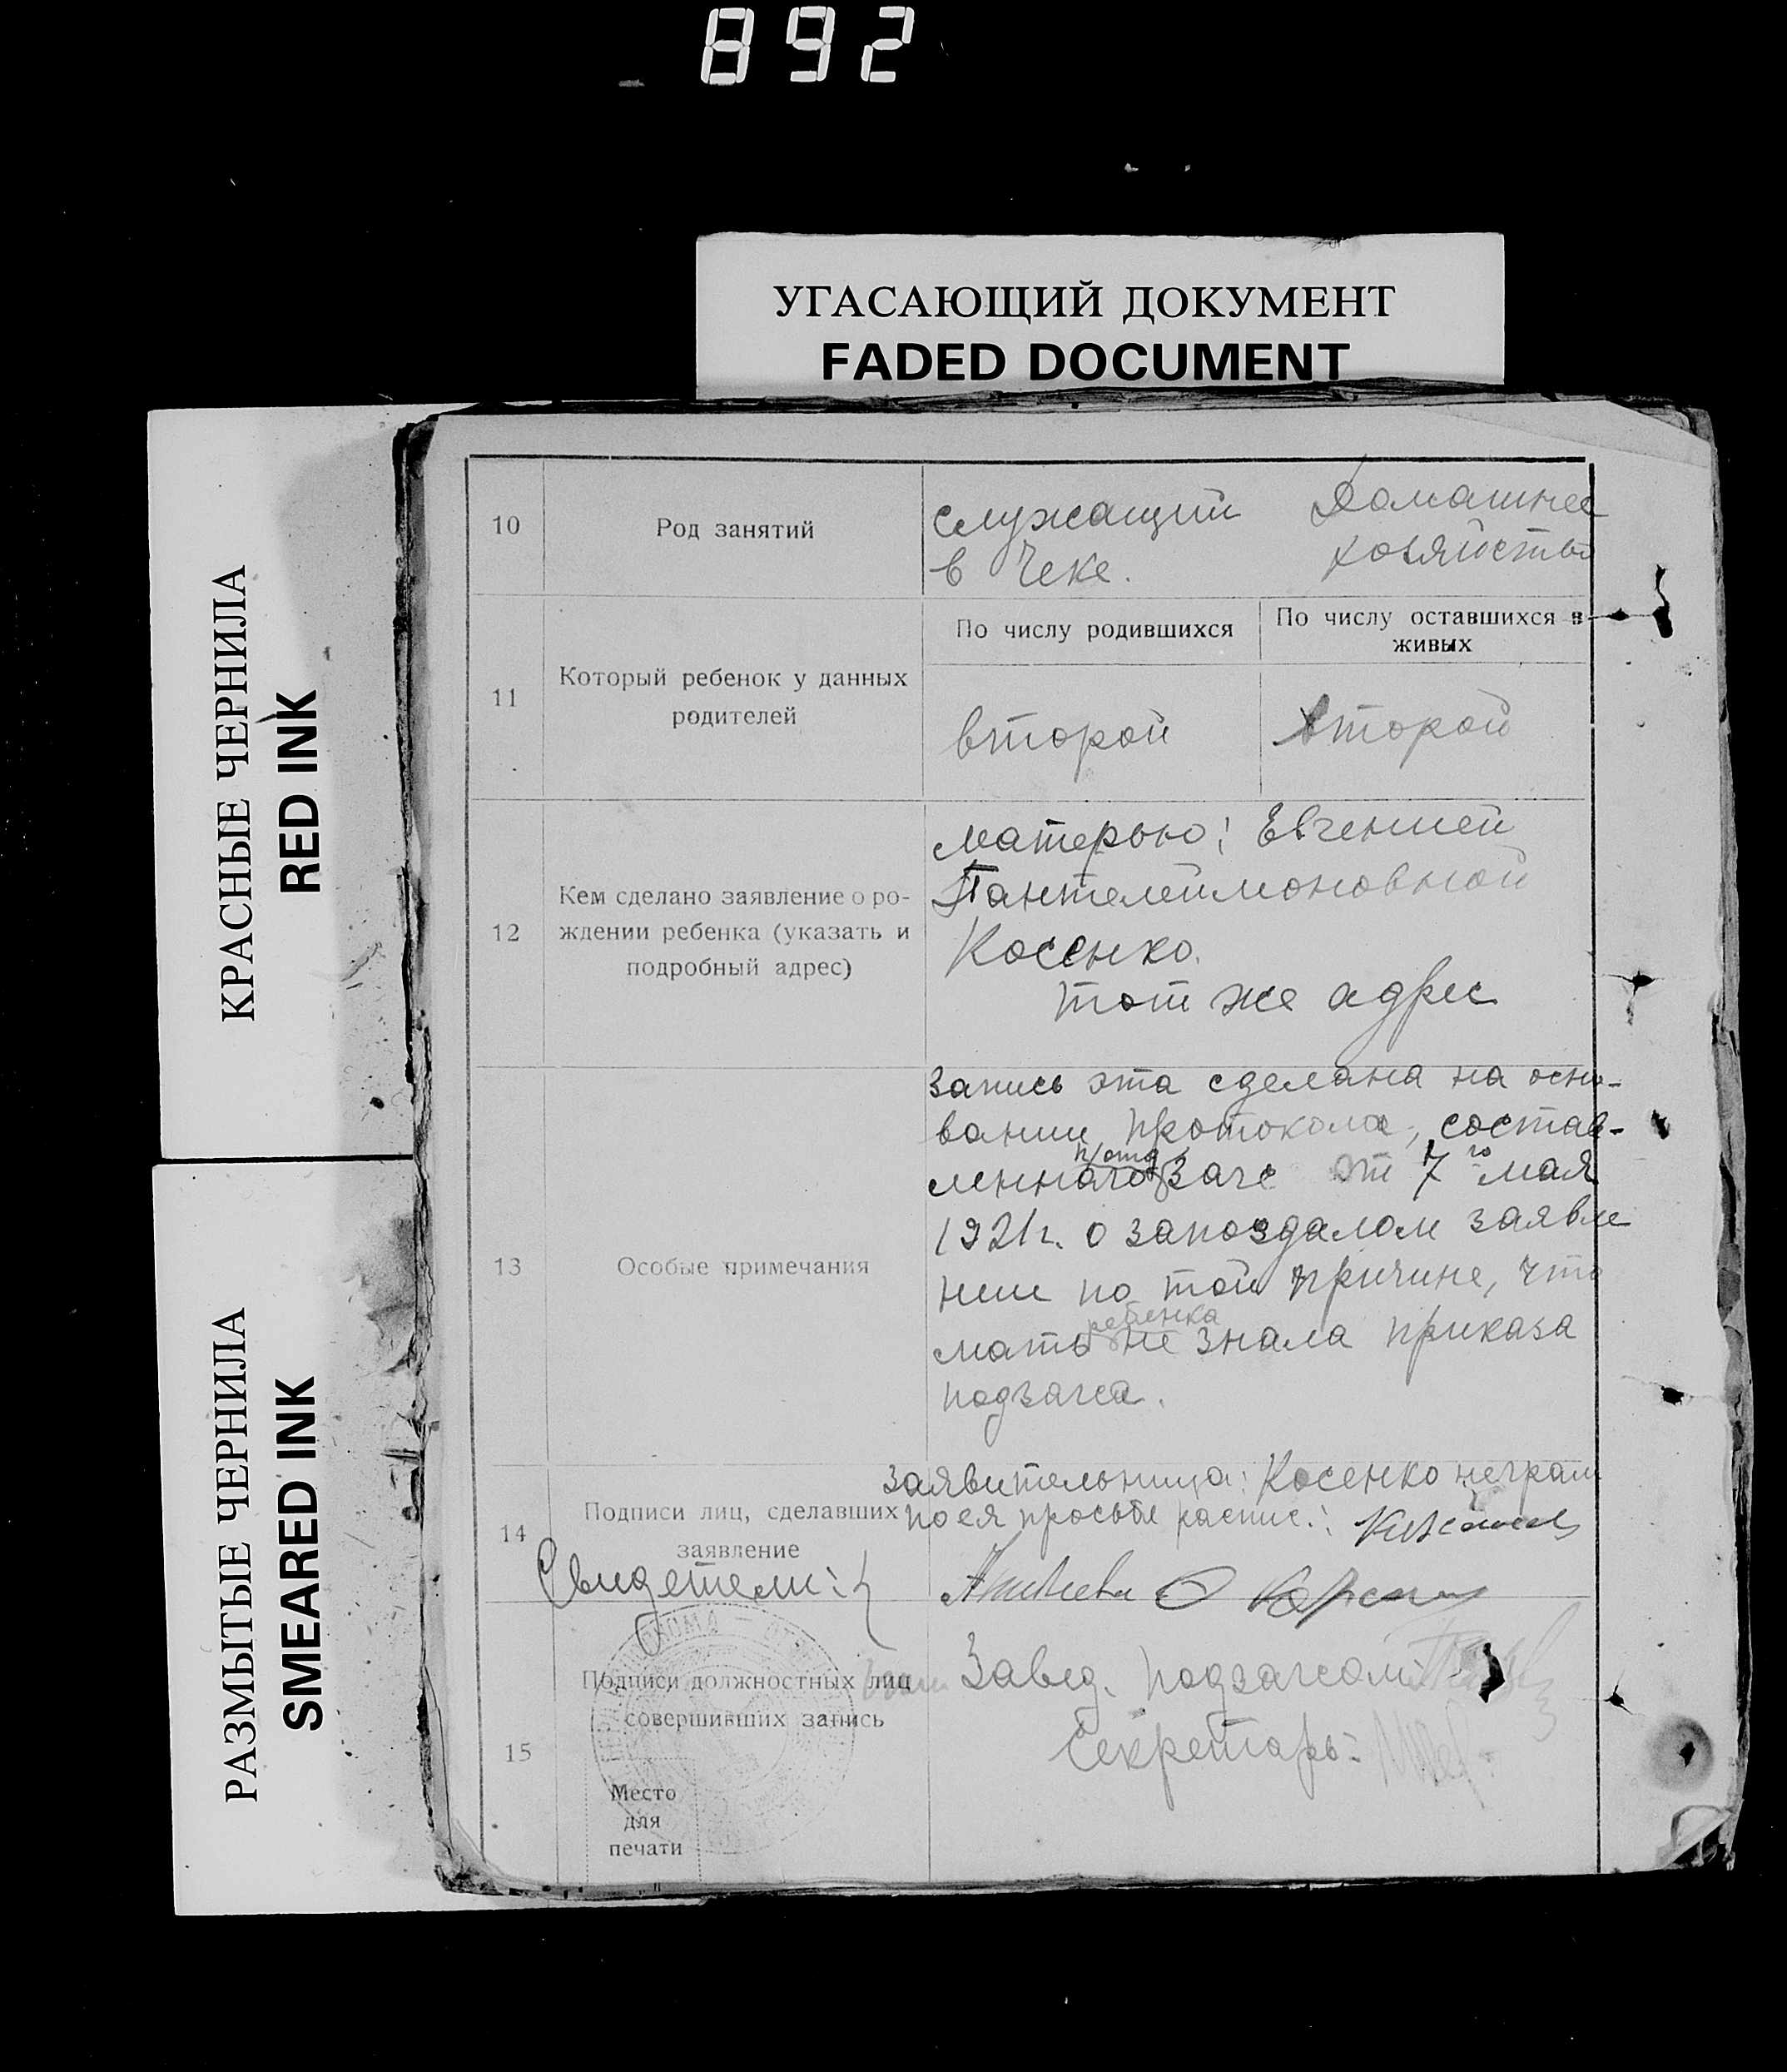 892
УГАСАЮЩИЙ ДОКУМЕНТ
FADED DOCUMENT
КРАСНЫЕ ЧЕРНИЛА
RED INK
РАЗМЫТЫЕ ЧЕРНИЛА
SMEARED INK
10
Род занятий
служащий
в Чеке.
Домашнее
хозяйство
11
Который ребенок у данных
родителей
По числу родившихся
По числу оставшихся в
живых
второй
второй
12
Кем сделано заявление о ро-
ждении ребенка (указать и
подробный адрес)
матерью: Евгенией
Пантелеймоновной
Косенко.
тот же адрес
13
Особые примечания
Запись эта сделана на осно-
вании протокола, состав-
п/отд
леннаго Заге от 7го мая
1921г. о запоздалом заявле
нии по той причине, что
ребенка
мать не знала приказа
подзагса.
14
Подписи лиц, сделавших
заявление
Заявительница: Косенко неграм
по ея просьбе распис.:
Свидетели:
15
Подписи должностных лиц
совершивших запись
Место
для
печати
Завед. подзагсом:
Секретарь: